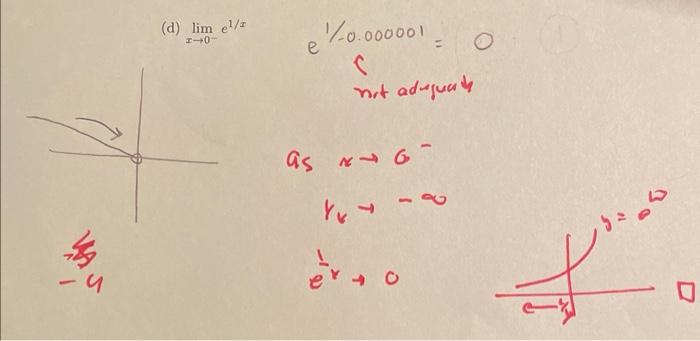 (d) lim x→0⁻ e^{1/x}
e^{1/-0.000001} = 0
not adequate
as x → 0⁻
1/x → -∞
e^{1/x} → 0
y = e^w
-4